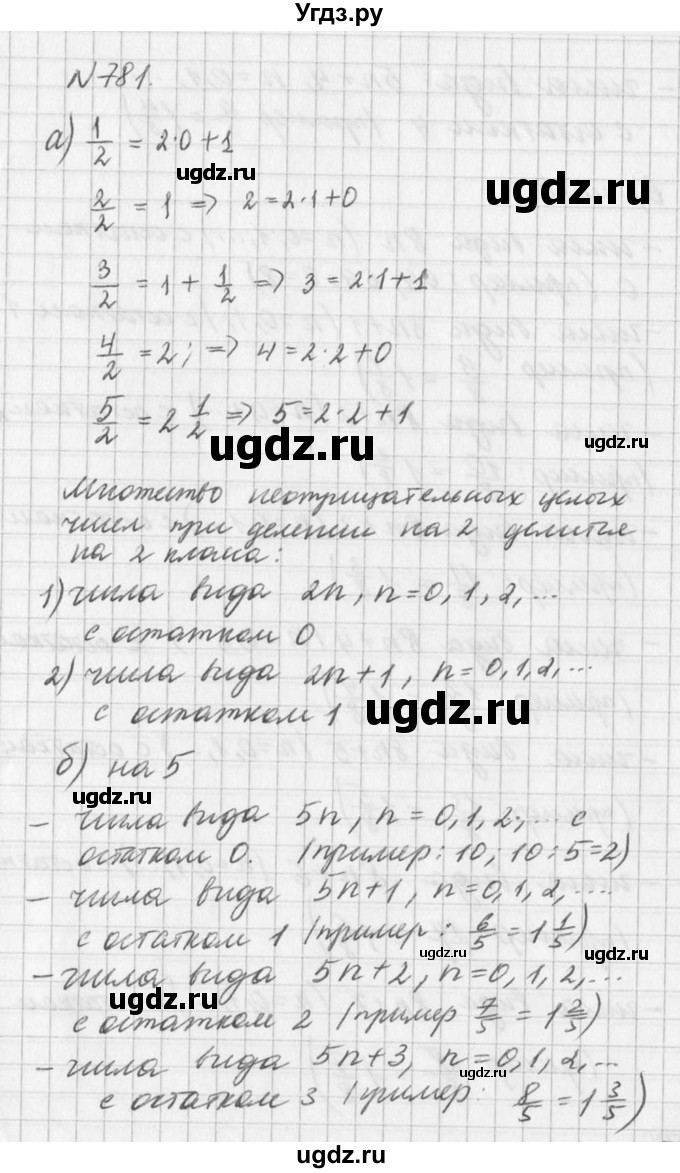 Угдз.ру
№781.
а) 1/2 = 2·0+1
ugdz.ru
ugdz.ru
2/2 = 1 => 2=2·1+0
3/2 = 1 + 1/2 => 3=2·1+1
4/2 = 2; => 4=2·2+0
5/2 = 2 1/2 => 5=2·2+1
ugdz.ru
ugdz.ru
Множество неотрицательных целых
чисел при делении на 2 делится
на 2 класса:
1) числа вида 2n, n=0,1,2,...
с остатком 0
2) числа вида 2n+1, n=0,1,2,...
с остатком 1
ugdz.ru
б) на 5
ugdz.ru
– числа вида 5n, n=0,1,2,... с
остатком 0. (пример: 10; 10:5=2)
– числа вида 5n+1, n=0,1,2,....
с остатком 1 (пример: 6/5 = 1 1/5)
ugdz.ru
– числа вида 5n+2, n=0,1,2,...
ugdz.ru
с остатком 2 (пример 7/5 = 1 2/5)
– числа вида 5n+3, n=0,1,2,...
ugdz.ru
с остатком 3 (пример: 8/5 = 1 3/5)
ugdz.ru